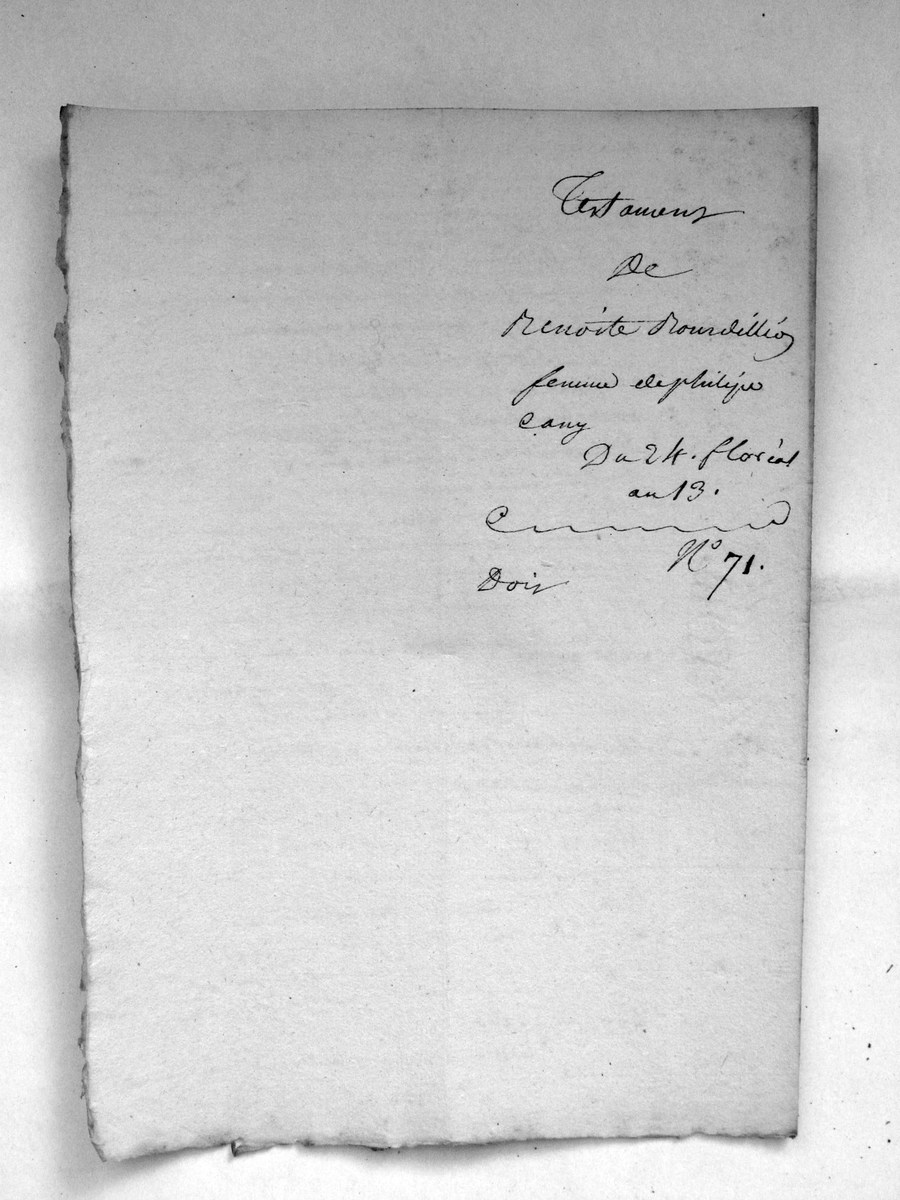 Testament
De
Benoite Bourdillio
femme de philipe
Cany
Du 24. floréal
an 13.
N° 71.
Doit